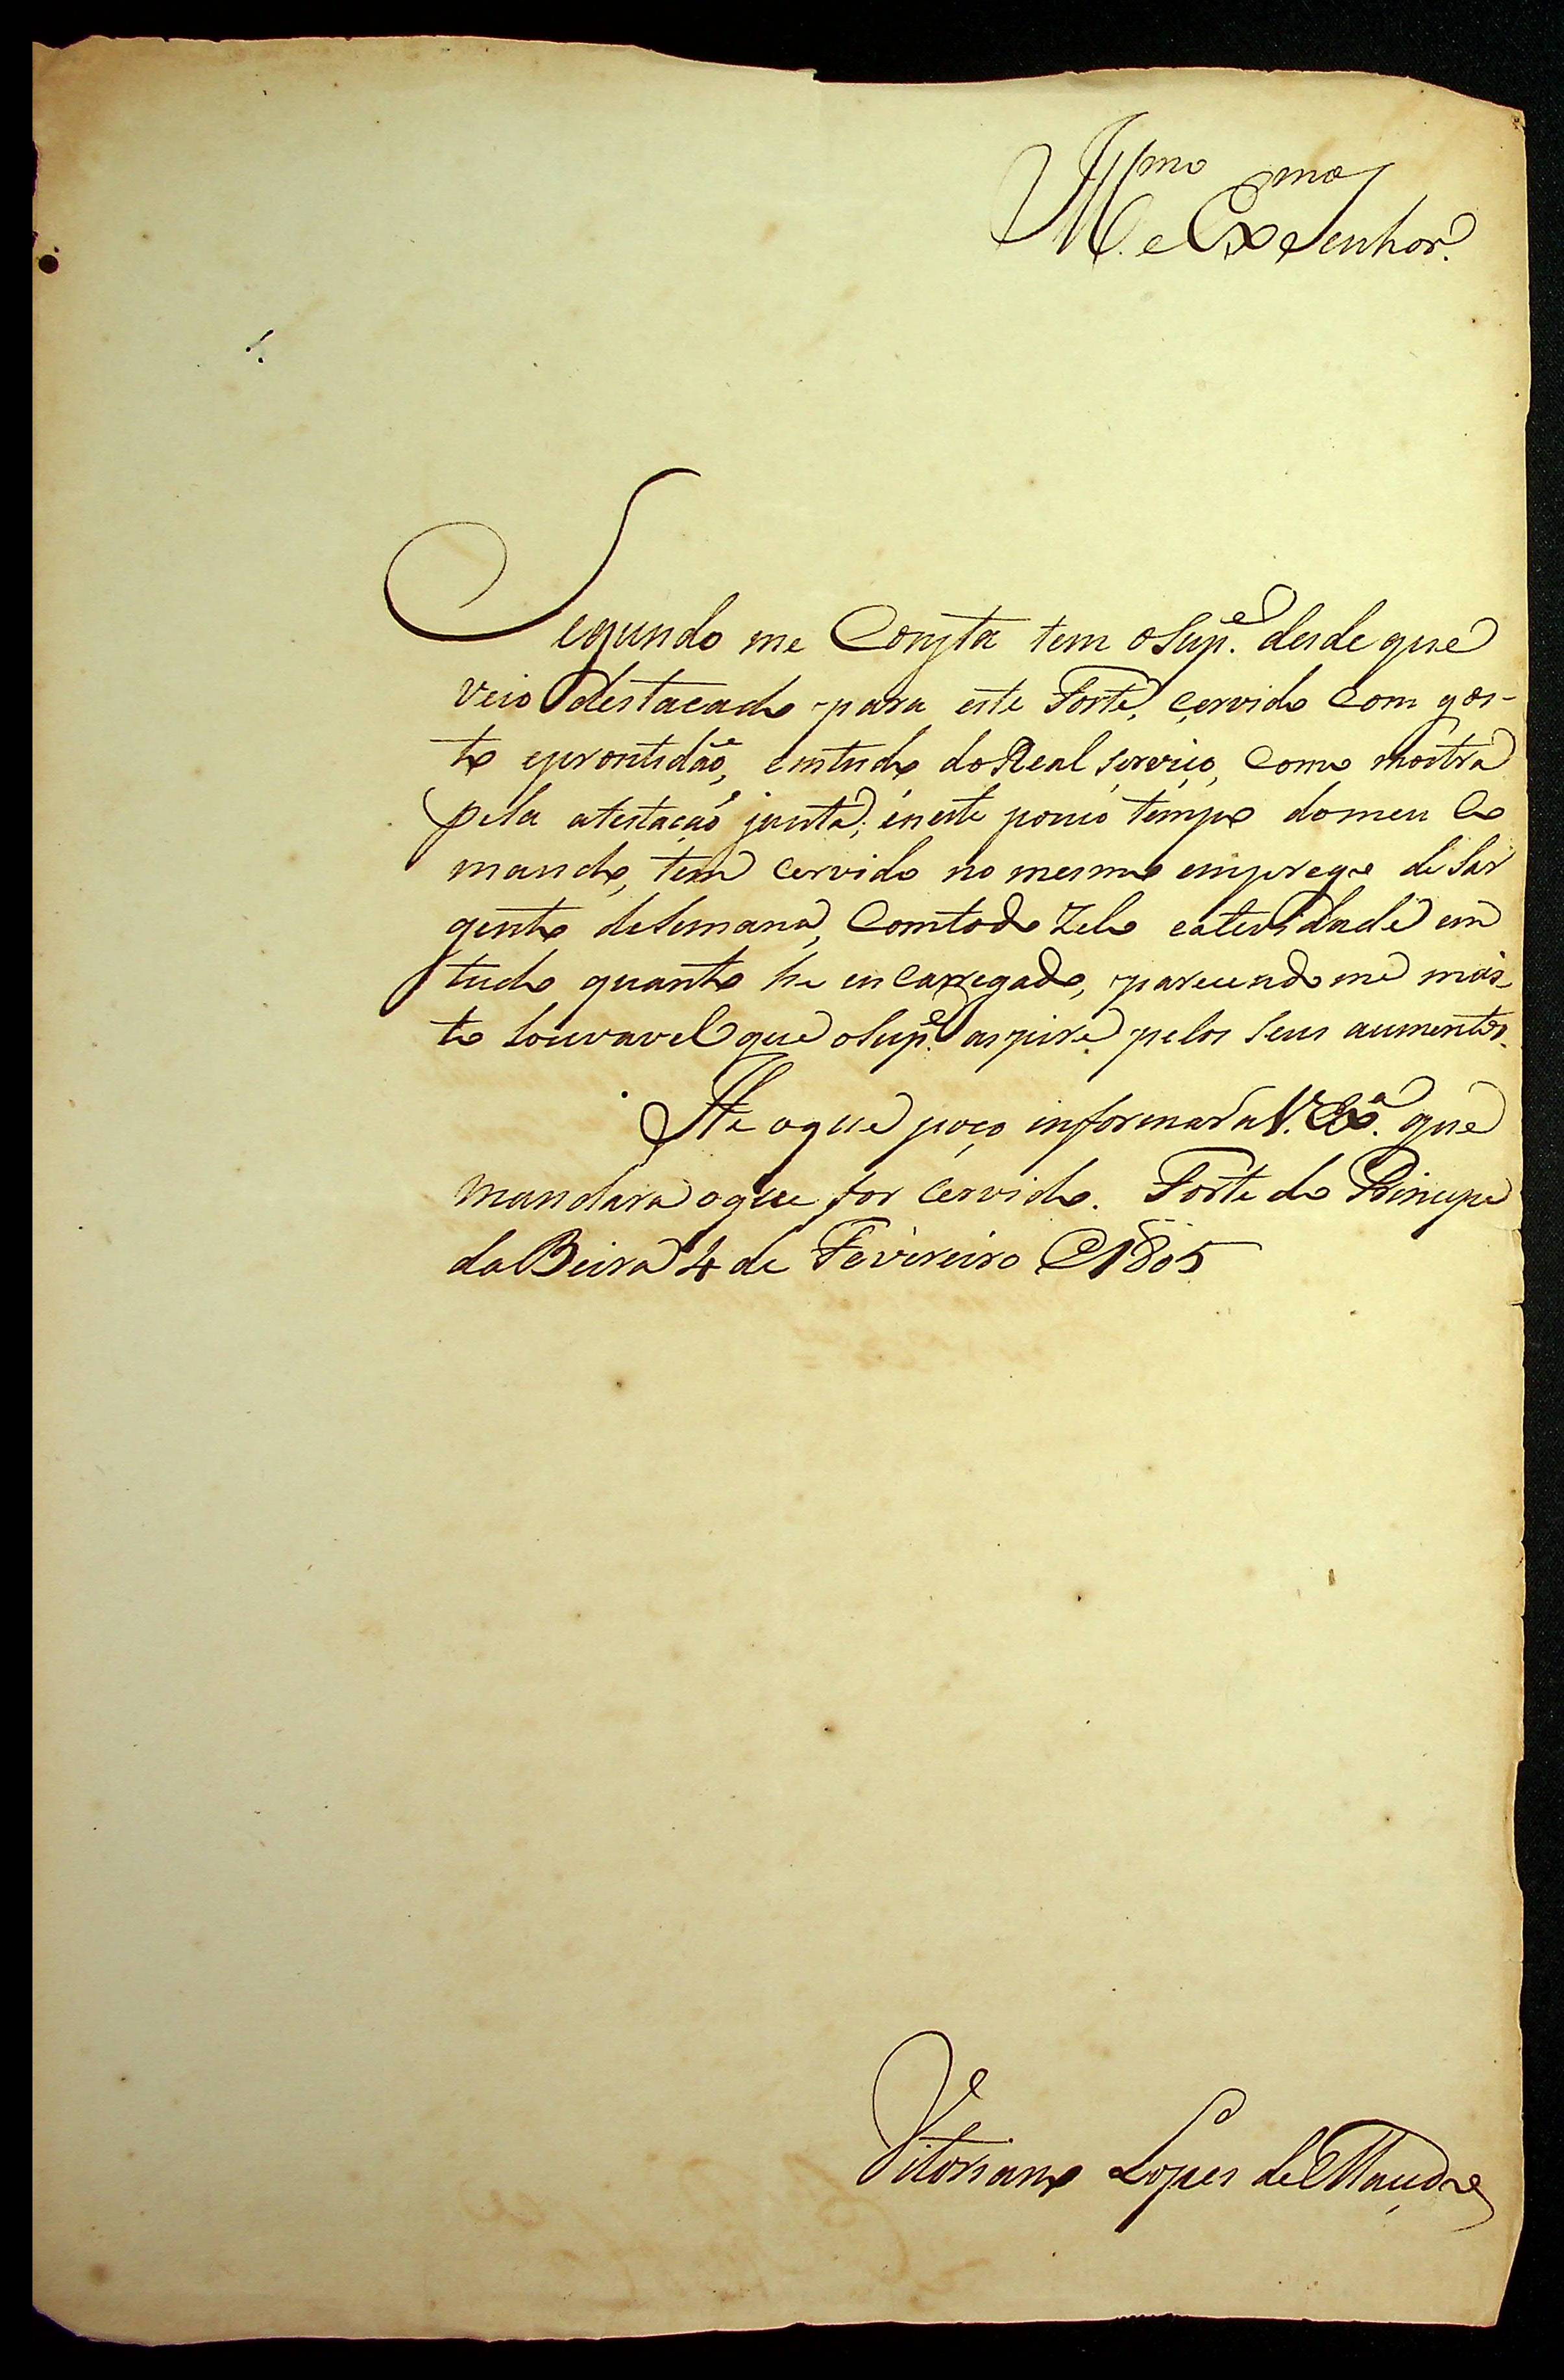 Ill.mo e Ex.mo Senhor.
Segundo me Consta tem o Sup.e desde que
veio destacado para este Forte, cervido com gos-
to eprontidão, emtudo do Real serviço, como mostra
pela atestação junta; eneste pouco tempo domeu Co
mando, tem cervido no mesmo emprego de Sar
gento deSemana, Comtodo Zelo eatevidade em
tudo quanto he encarregado, parecendome mui-
to Louvavel que oSup.e aspire pelos seus aumentos.
He oque poço informar a V. Ex.a que
mandará oque for cervido. Forte do Principe
da Beira 4 de Fevereiro de 1805
Vitoriano Lopes de Maçedo